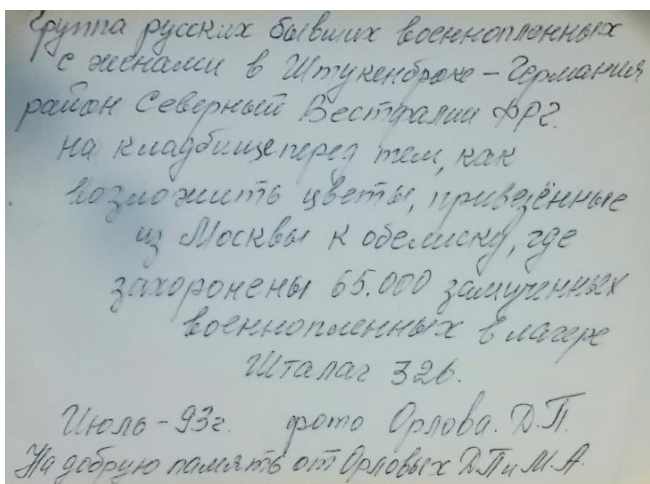 Группа русских бывших военнопленных
с женами в Штукенброке - Германия
район Северный Вестфалии ФРГ.
на кладбище перед тем, как
возложить цветы, привезённые
из Москвы к обелиску, где
захоронены 65.000 замученных
военнопленных в лагере
Шталаг 326.
Июль - 93г. фото Орлова. Д.П.
На добрую память от Орловых Д.П и М.А.